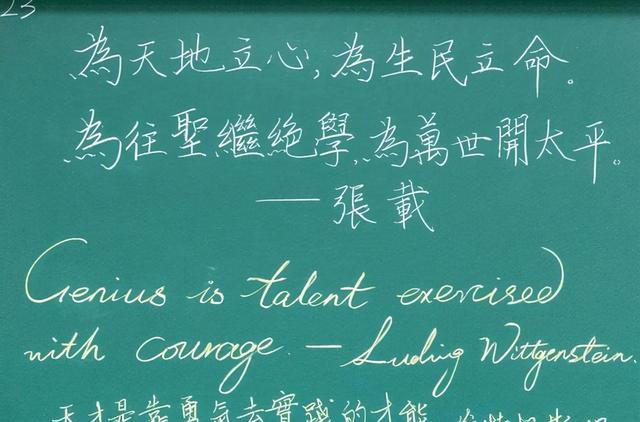 23
為天地立心,為生民立命。
為往聖繼絕學,為萬世開太平。
——張載
Genius is talent exercised
with courage. — Ludwig Wittgenstein.
天才是靠勇氣去實踐的才能